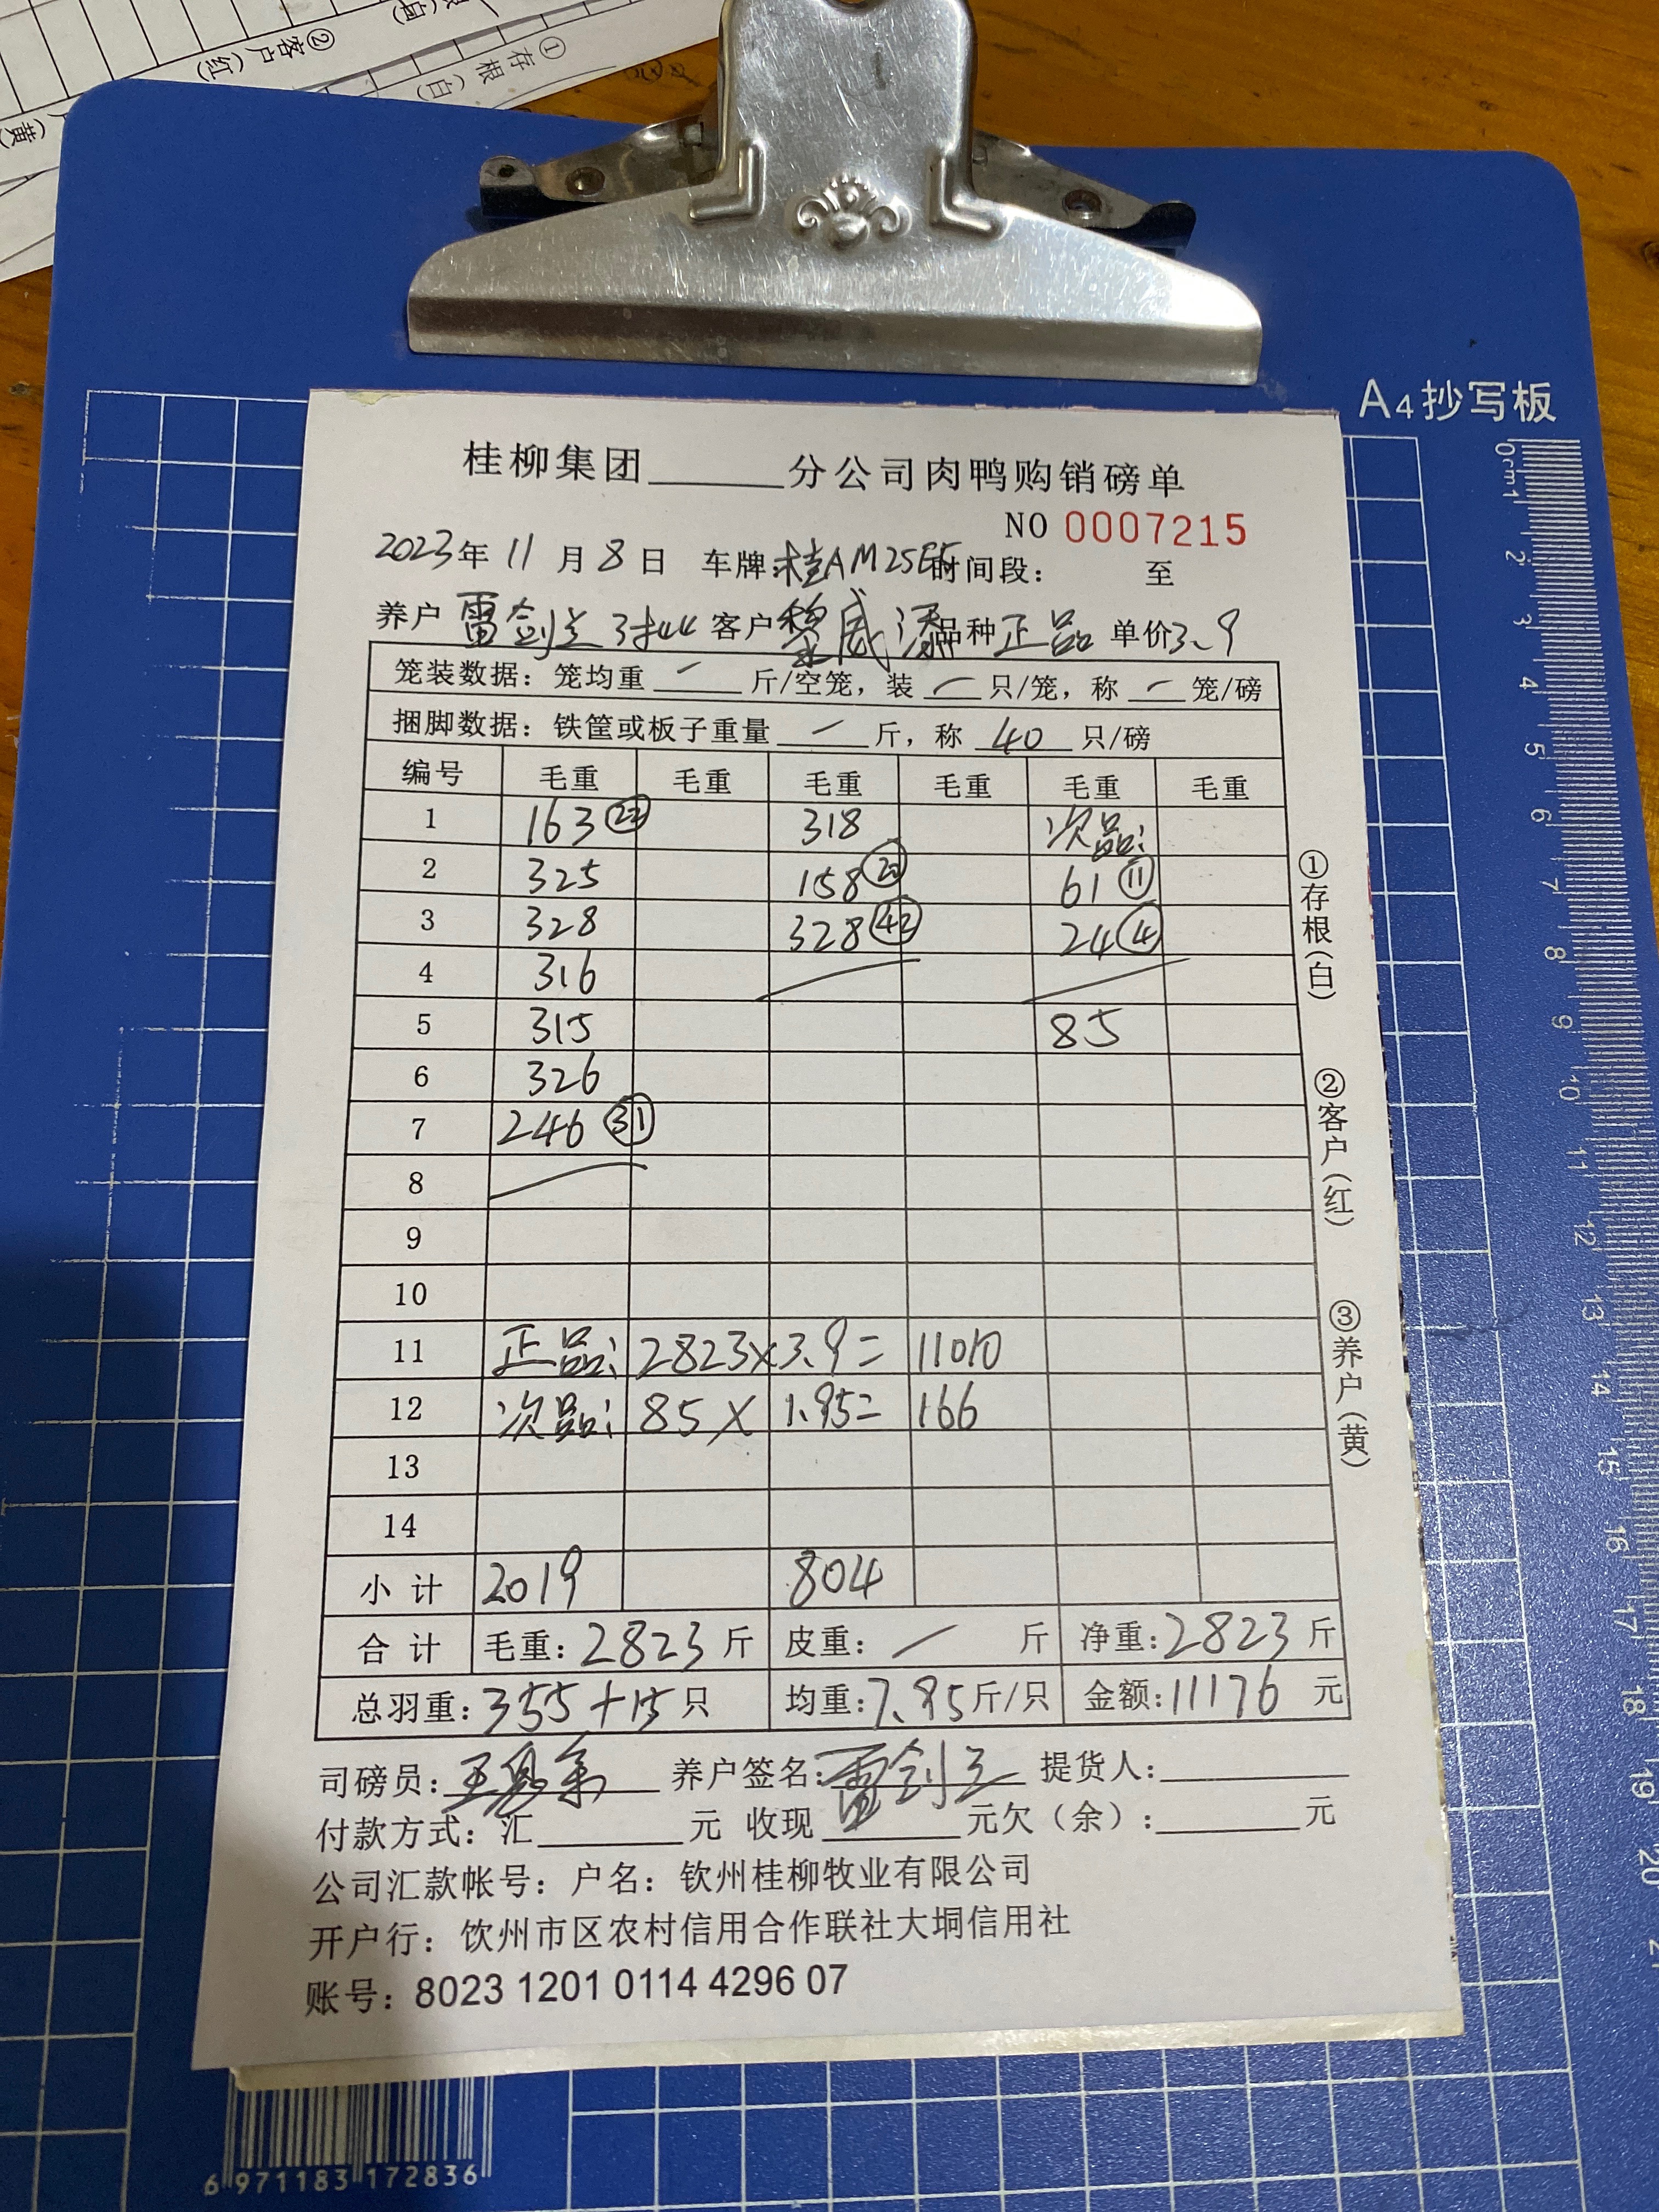 ② 客户（红）
① 存根（白）
（黄）
A4抄写板
桂柳集团______分公司肉鸭购销磅单
NO 0007215
2023年 11 月 8 日 车牌:桂AM25E5 时间段： 至
养户 雷剑兰 客户 威 品种 正品 单价3.9
笼装数据：笼均重 — 斤/空笼，装 — 只/笼，称 — 笼/磅
捆脚数据：铁筐或板子重量 — 斤，称 40 只/磅
编号 毛重 毛重 毛重 毛重 毛重 毛重
1 163 318 次品:
2 325 158⑳ 61⑪
3 328 328㊷ 24④
4 316
5 315 85
6 326
7 246㉛
8
9
10
11 正品: 2823×3.9= 11010
12 次品: 85× 1.95= 166
13
14
小计 2019 804
合计 毛重：2823斤 皮重：— 斤 净重:2823斤
总羽重：355+15只 均重:7.95斤/只 金额:11176 元
司磅员: 养户签名:雷剑兰 提货人:
付款方式：汇______元 收现______元欠（余）:______元
公司汇款帐号：户名：钦州桂柳牧业有限公司
开户行：饮州市区农村信用合作联社大垌信用社
账号：8023 1201 0114 4296 07
①存根（白）
②客户（红）
③养户（黄）
0cm1 2 3 4 5 6 7 8 9 10 11 12 13 14 15 16 17 18 19 20
6 971183 172836